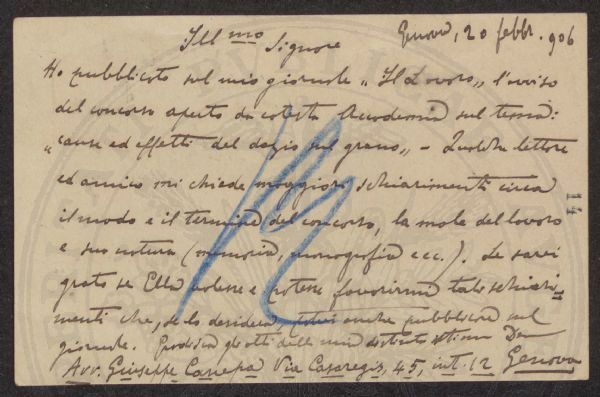 Genova, 20 febbr. 906
Ill.mo Signore
Ho pubblicato sul mio giornale „Il Lavoro„ l'avviso
del concorso aperto da cotesta Accademia sul tema:
„cause ed effetti del dazio sul grano„ - Qualche lettore
ed amico mi chiede maggiori schiarimenti circa
il modo e il termine del concorso, la mole del lavoro
e sua natura (memoria, monografia ecc.). Le sarei
grato se Ella volesse e potesse favorirmi tale schiari-
menti che, se lo desidera, potrei anche pubblicare nel
giornale. Gradisca gli atti della mia distinta stima Dev
Avv. Giuseppe Canepa Via Casaregis, 45, int. 12 Genova
14